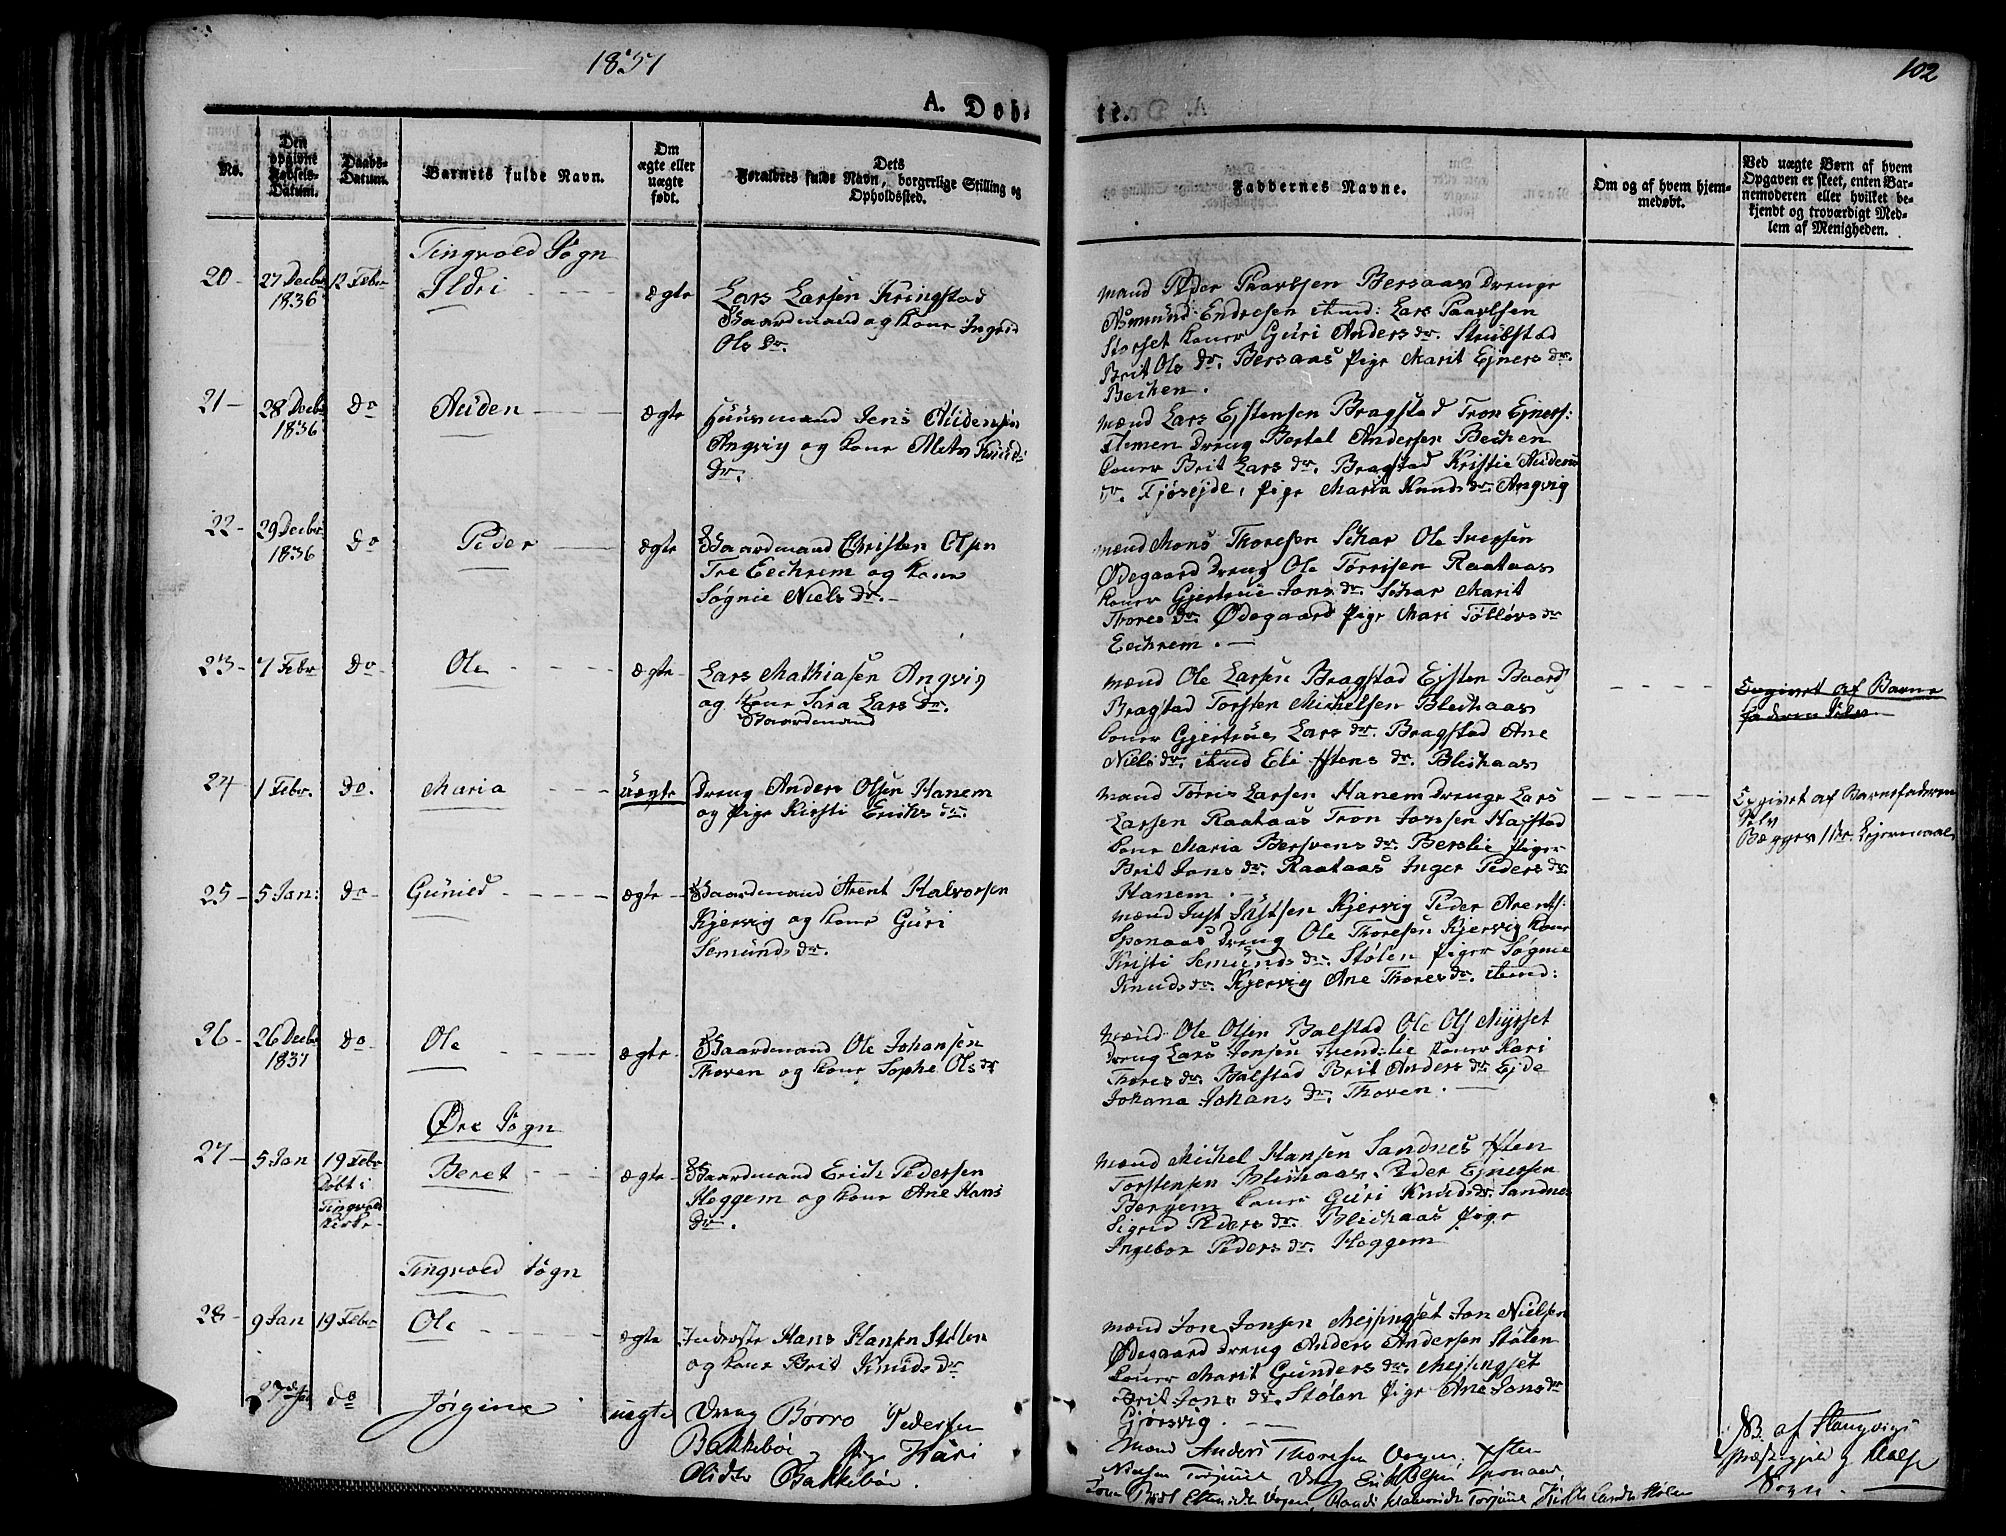 1837
102
A. Døb-
te.
No.
Den
opgivne
Fødsels-
Datum.
Daabs-
Datum.
Barnets fulde Navn.
Om
ægte eller
uægte
født.
Dets
Forældres fulde Navn, borgerlige Stilling og
Opholdssted.
Faddernes Navne.
Om og af hvem hjem-
medøbt.
Ved uægte Børn af hvem
Opgaven er skeet, enten Bar-
nemoderen eller hvilket be-
kjendt og troværdigt Med-
lem af Menigheden.
Tingvold Sogn
20 - 27 Decbr 12 Febr Ildri ægte Lars Larsen Kringstad
1836 Gaardmand og kone Ingrid
Ols Dr.
mænd Peder Paavlsen Bersaas Drenge
Asmund Endresen Lars Paavlsen
Storset koner Guri Anders dr. Strubstad
Brit Ols Dr. Bersaas Pige Marit Ejners dr.
Bechen.
21 - 28 Decbr Do Auden ægte Huusmand Jens Audensen
1836 Angvig og kone Knuds
Dr.
mænd Lars Estensen Bragstad Tron Ejners:
Flemen Dreng Bertel Andersen Bechen
koner Brit Lars dr. Bragstad Kristie Audens
dr. Fjøsejde, Pige Maria Knuds dr. Angvig
22 - 29 Decbr Do Peder ægte Gaardmand Christen Olsen
1836 Tre Eechrem og kone
Søgnie Niels Dr. -
mænd Mons Thoresen Skar Ole Iversen
Ødegaard Dreng Ole Tørrisen Raataas
koner Gjertrue Jons dr. Skar Marit
Thores Dr. Ødegaard Pige Mari Tølløvs dr
Eechrem. -
23 - 7 Febr Do Ole ægte Lars Mathiasen Angvig
og kone Sara Lars Dr.
Gaardmand
mænd Ole Larsen Bragstad Ejsten Baard
Bragstad Torsten Michelsen Blechaas
koner Gjertrue Lars dr. Bragstad Ane
Niels dr. Eli Estens dr. Blechaas
Opgivet af Barne
faderen selv
24 1 Febr. Do. Maria uægte Dreng Anders Olsen Hanem
og Pige Kirsti Erichs dr.
mænd Tørris Larsen Hanem Drenge Lars
Larsen Raataas Tron Jonsen Hafstad
kone Maria Bersvens dr. Berslie Piger
Brit Jons dr. Raataas Inger Peders dr.
Hanem.
Opgivet af Barnefaderen
selv
Begges 1ste Lejermaal
25 - 5 Jan: Do Guned ægte Gaardmand Arent Halvorsen
Kjervig og kone Guri
Semunds dr.
mænd Just Justsen Kjervig Peder Arents:
Sponaas Dreng Ole Thoresen Kjervig kone
Kristi Semunds dr. Stølen Piger Søgnie
Knuds dr. Kjervig Ane Thores dr.
26 - 26 Decbr Do Ole ægte Gaardmand Ole Johansen
1837 Thoven og kone Sophe Ols dr
mænd Ole Olsen Balstad Ole Ols Myrset
Dreng Lars Jonsen koner Kari
Thores dr. Balstad Brit Anders dr. Ejde
Johana Johans dr. Thoven.
Øre Sogn
27 - 5 Jan 19 Febr Beret ægte Gaardmand Erich Pedersen
Døbt i Hoggem og kone Ane Hans
Tingvold dr.
Kirke -
mænd Michel Hansen Sandnes Esten
Torstensen Blechaas Peder Ejnersen
Bergem koner Guri Knuds dr. Sandnes
Sigrid Peders dr. Blechaas Pige
Ingebor Peders dr. Hoggem
Tingvold Sogn
28 - 9 Jan 19 Febr Ole ægte Inderste Hans Hansen Stølen
og kone Brit Knuds dr
mænd Jon Jonsen Mejsingset Jon Nielsen
Ødegaard Dreng Anders Andersen Stølen
koner Marit Gunders dr. Mejsingset
Brit Jons dr. Stølen Pige Ane Jons dr
Gjørsvig. -
27 do Jørgine uægte Dreng Børro Pedersen
Bakkebøe og Pige Kari
Bakkebøe.
Mænd Anders Thoresen Vogen, Esten
Nielsen
NB. af Stangvigs
Præstegjeld og
Sogn. -